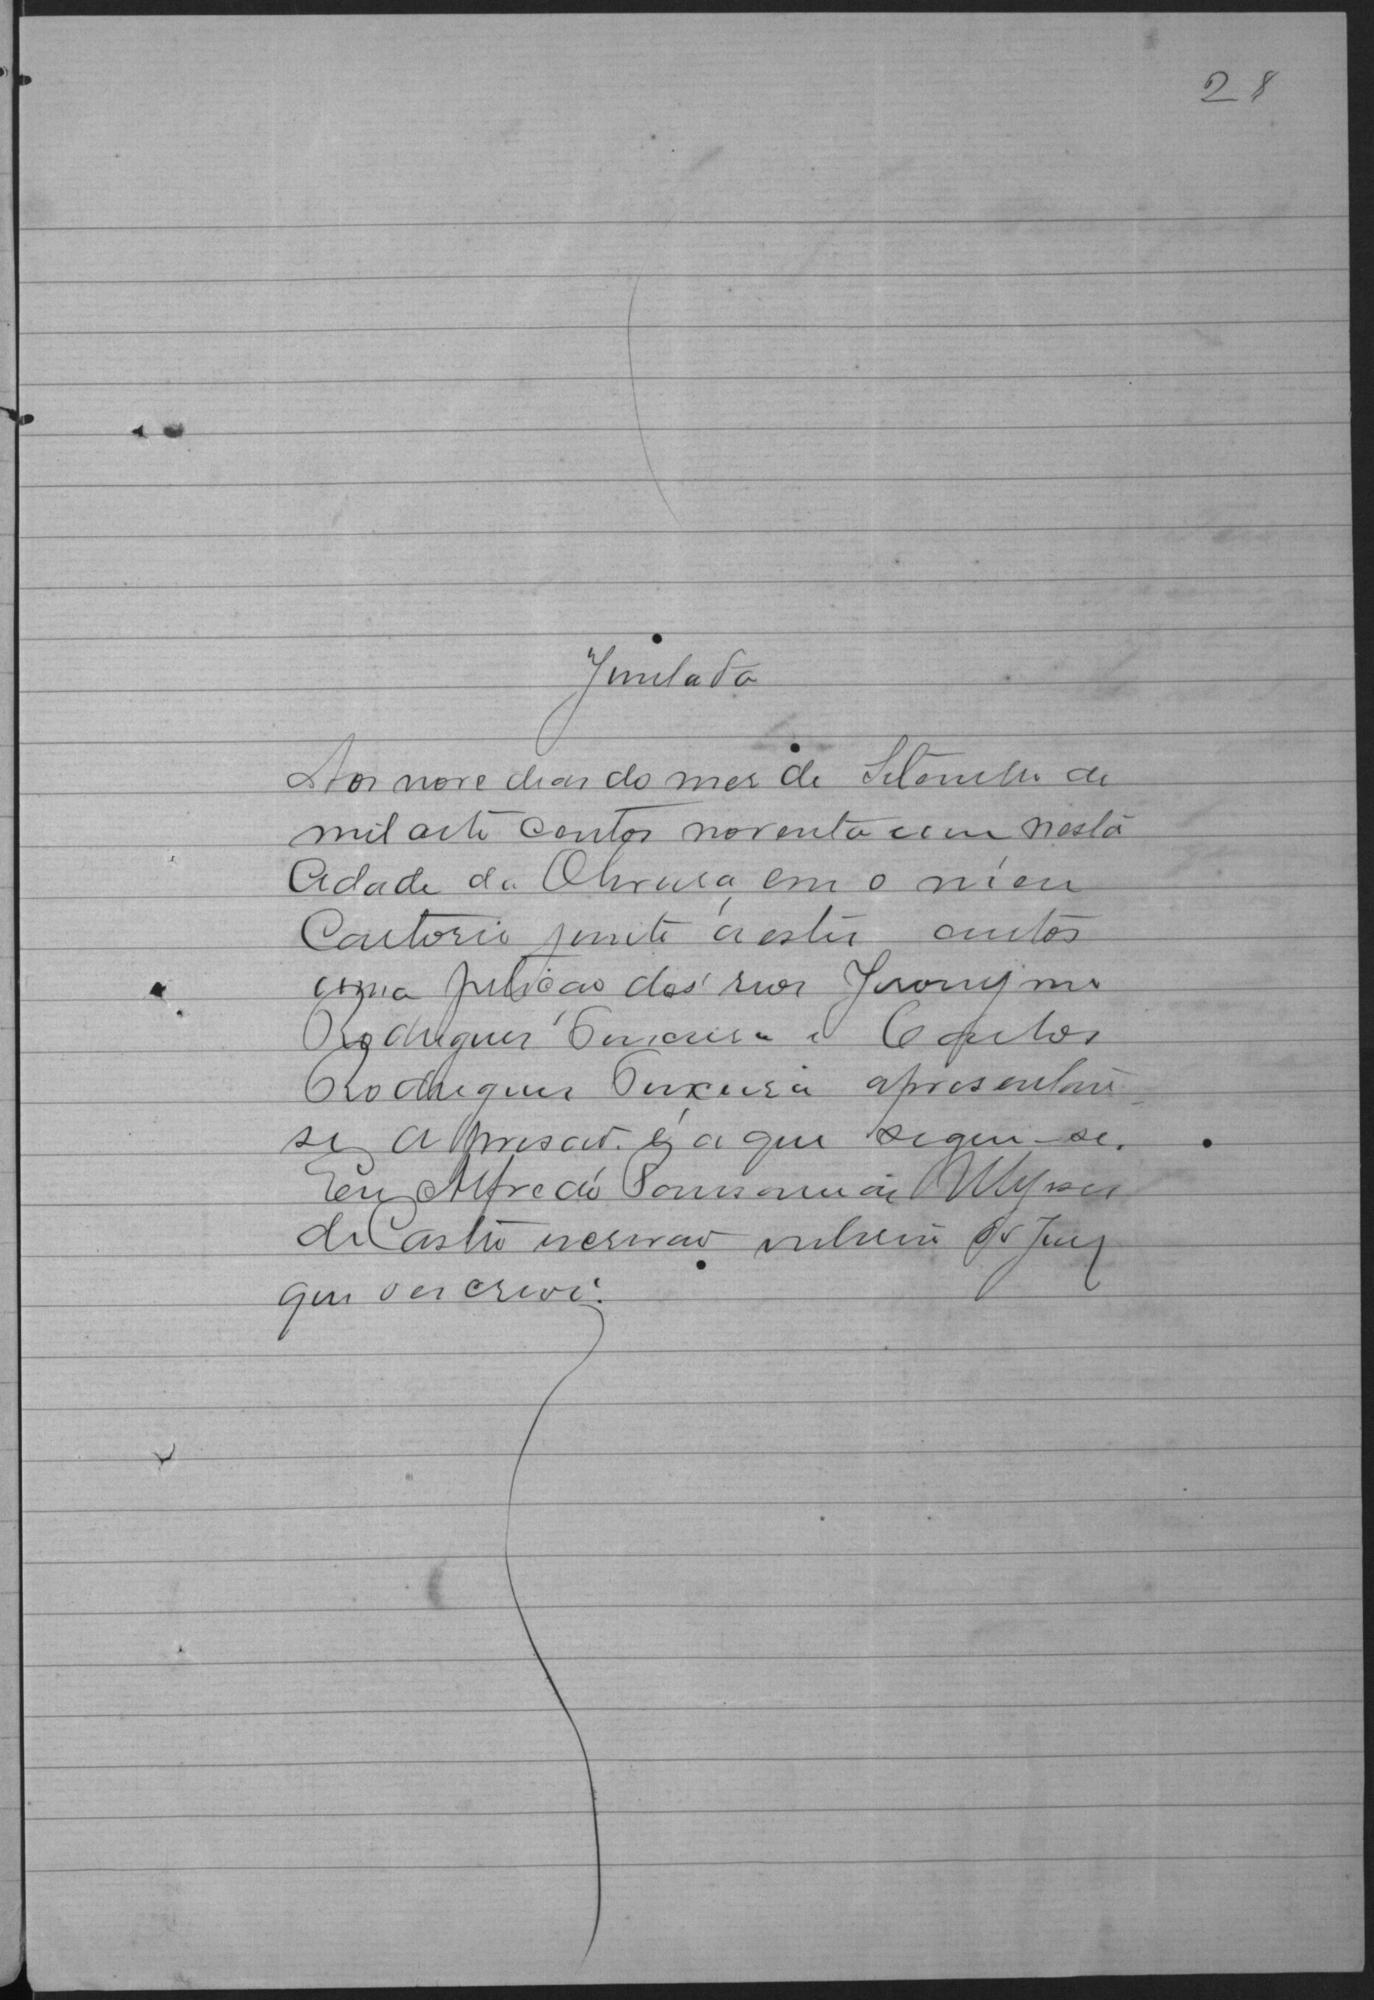 28
Juntada
Aos nove dias do mes de Setembro de
mil oito centos noventa e um nesta
Cidade da Oliveira, em o meu
Cartorio junto á estes autos
uma petição dos reos Jeronymo
Rodrigues Teixeira e Carlos
Rodrigues Teixeira apresentare
se, á prisão. é a que segue-se.
Eu Alfredo Ulysses
de Castro escrivão interino do Jury
que o escrevi.